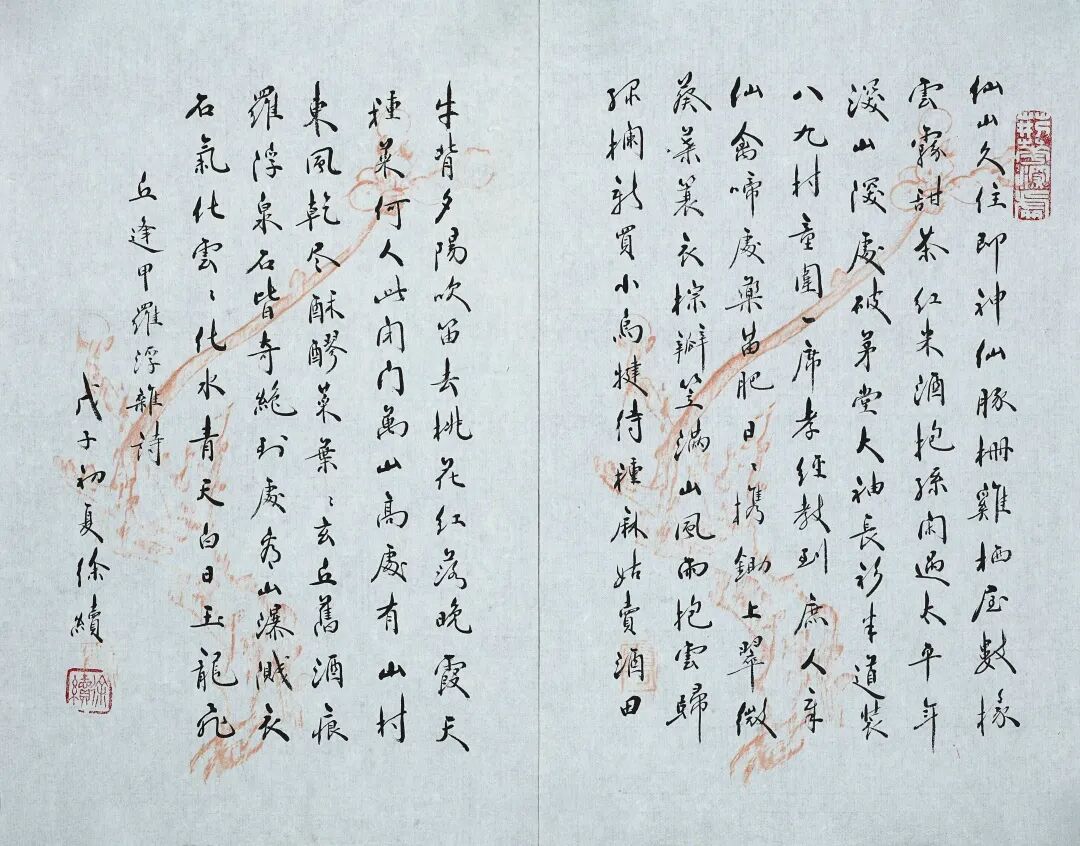 仙山久住即神仙豚柵雞栖屋數椽
雲霧甜茶红米酒抱孫閑過太平年
深山深處破茅堂大袖長衫半道裝
八九村童圍一席孝經教到庶人章
仙禽啼處藥苗肥日〻攜鋤上翠微
葵葉蓑衣棕辮笠滿山風雨抱雲歸
欄新買小烏犍待種麻姑賣酒田
牛背夕陽吹笛去桃花红落晚霞天
種菜何人此闭门萬山高處有山村
東風乾尽酥醪菜葉〻玄丘舊酒痕
羅浮泉石皆奇絕到處看山瀑濺衣
石氣化雲〻化水青天白日玉龍飛
丘逢甲羅浮雜詩
戊子初夏徐續
徐續